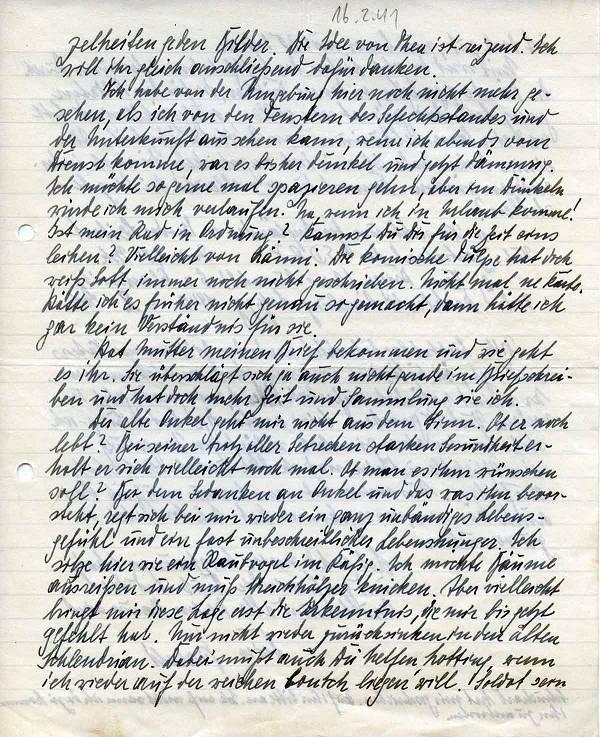 16.2.41
zelheiten jeden Bilder. Die Idee von Thea ist reizend. Ich
will ihr gleich anschließend dafür danken.
Ich habe von der Umgebung hier noch nicht mehr ge-
sehen, als ich von den Fenstern des Gefechtsstandes und
der Unterkunft aus sehen kann, wenn ich abends vom
Dienst komme, war es bisher dunkel und jetzt dämmrig.
Ich möchte so gerne mal spazieren gehn, aber im Dunkeln
würde ich mich verlaufen. Na, wenn ich in Urlaub komme!
Ist mein Rad in Ordnung? Kannst Du Dir für die Zeit eins
leihen? Vielleicht von Hanni. Die komische Tulpe hat doch
weiß Gott, immer noch nicht geschrieben. Nicht mal ne Karte.
Hätte ich es früher nicht genau so gemacht, dann hätte ich
gar kein Verständnis für sie.
Hat Mutter meinen Brief bekommen und wie geht
es ihr. Sie überschlägt sich ja auch nicht gerade im Briefschrei-
ben und hat doch mehr Zeit und Sammlung wie ich.
Der alte Onkel geht mir nicht aus dem Sinn. Ob er noch
lebt? Bei seiner trotz aller Gebrechen starken Gesundheit er-
holt er sich vielleicht noch mal. Ob man es ihm wünschen
soll? Bei dem Gedanken an Onkel und das was ihm bevor-
steht, regt sich bei mir wieder ein ganz unbändiges Lebens-
gefühl und ein fast unbeschreiblicher Lebenshunger. Ich
sitze hier wie ein Raubvogel im Käfig. Ich möchte Bäume
ausreißen und muß Streichhölzer knicken. Aber vielleicht
bringt mir diese Lage erst die Erkenntnis, die mir bis jetzt
gefehlt hat. Nur nicht wieder zurücksinken in den alten
Schlendrian. Dabei mußt auch Du helfen, wenn
ich wieder auf der weichen Couch liegen will. Soldat sein